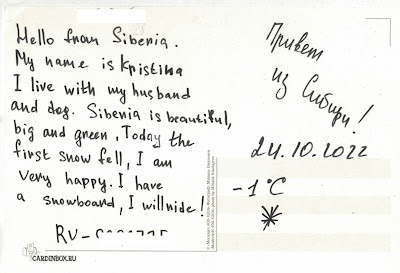 Hello from Siberia.
My name is Kristina
I live with my husband
and dog. Siberia is beautiful,
big and green. Today the
first snow fell, I am
very happy. I have
a snowboard, I will ride!
RU-
CARDINBOX.RU
Привет
из Сибири!
24.10.2022
-1°C